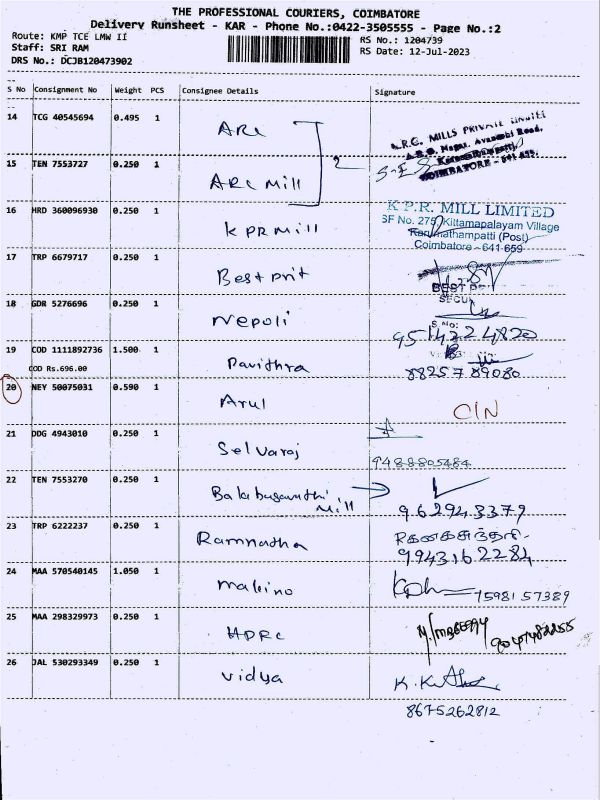 THE PROFESSIONAL COURIERS, COIMBATORE
Delivery Runsheet - KAR - Phone No.:0422-3505555 - Page No.:2
Route: KMP TCE LMW II
RS No.: 1204739
Staff: SRI RAM
RS Date: 12-Jul-2023
DRS No.: DCJB120473902
S No Consignment No Weight PCS Consignee Details Signature
14 TCG 40545694 0.495 1 ARC
A.R.C. MILLS PRIVATE LIMITED
COIMBATORE - 641
15 TEN 7553727 0.250 1 ARC Mill 2
16 HRD 360096930 0.250 1 KPR Mill
K.P.R. MILL LIMITED
SF No. 275, Kittampalayam Village
Karumathampatti (Post)
Coimbatore - 641 659
17 TRP 6679717 0.250 1 Best prit
BEST
18 GDR 5276696 0.250 1 Nepoli
S.No:
9514224820
19 COD 1111892736 1.500 1 Pavithra
COD Rs.696.00
88257 89080
20 NEY 50075031 0.590 1 Arul CIN
21 DDG 4943010 0.250 1 Selvaraj
9488805484
22 TEN 7553270 0.250 1 Mill
962943379
23 TRP 6222237 0.250 1 Ramnatha
9943162284
24 MAA 570540145 1.050 1 makino 7598157389
25 MAA 298329973 0.250 1 HDFC
26 JAL 530293349 0.250 1 Vidya
8675262812